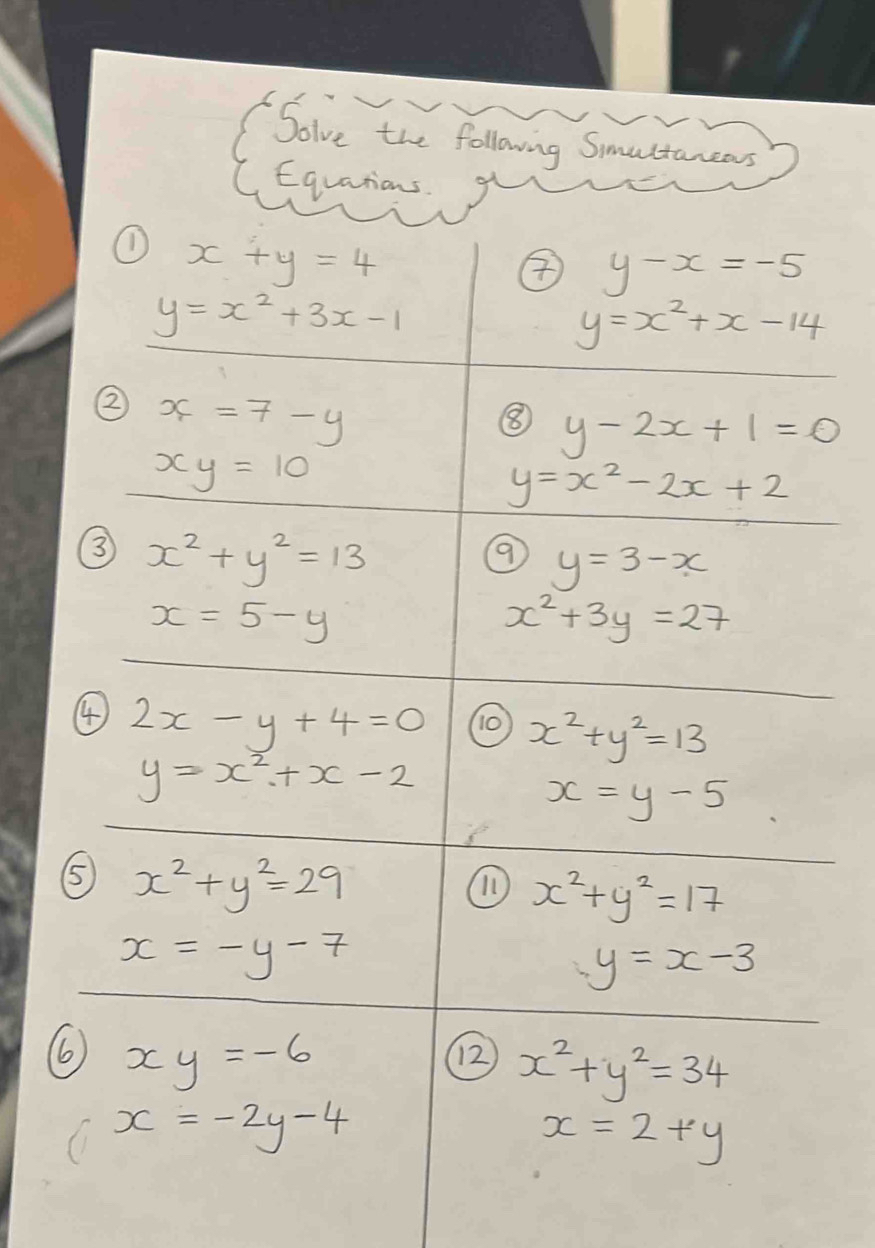 Solve the following Simultaneous
Equations.
① x + y = 4
y = x² + 3x - 1
② x = 7 - y
xy = 10
③ x² + y² = 13
x = 5 - y
④ 2x - y + 4 = 0
y = x² + x - 2
⑤ x² + y² = 29
x = -y - 7
⑥ xy = -6
x = -2y - 4
⑦ y - x = -5
y = x² + x - 14
⑧ y - 2x + 1 = 0
y = x² - 2x + 2
⑨ y = 3 - x
x² + 3y = 27
⑩ x² + y² = 13
x = y - 5
⑪ x² + y² = 17
y = x - 3
⑫ x² + y² = 34
x = 2 + y